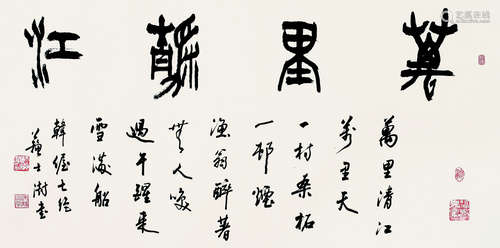 萬里靜江
萬里清江
萬里天
一村桑柘
一邨煙
漁翁醉著
無人喚
過午醒來
雪滿船
韓偓七絕
蘇士澍書